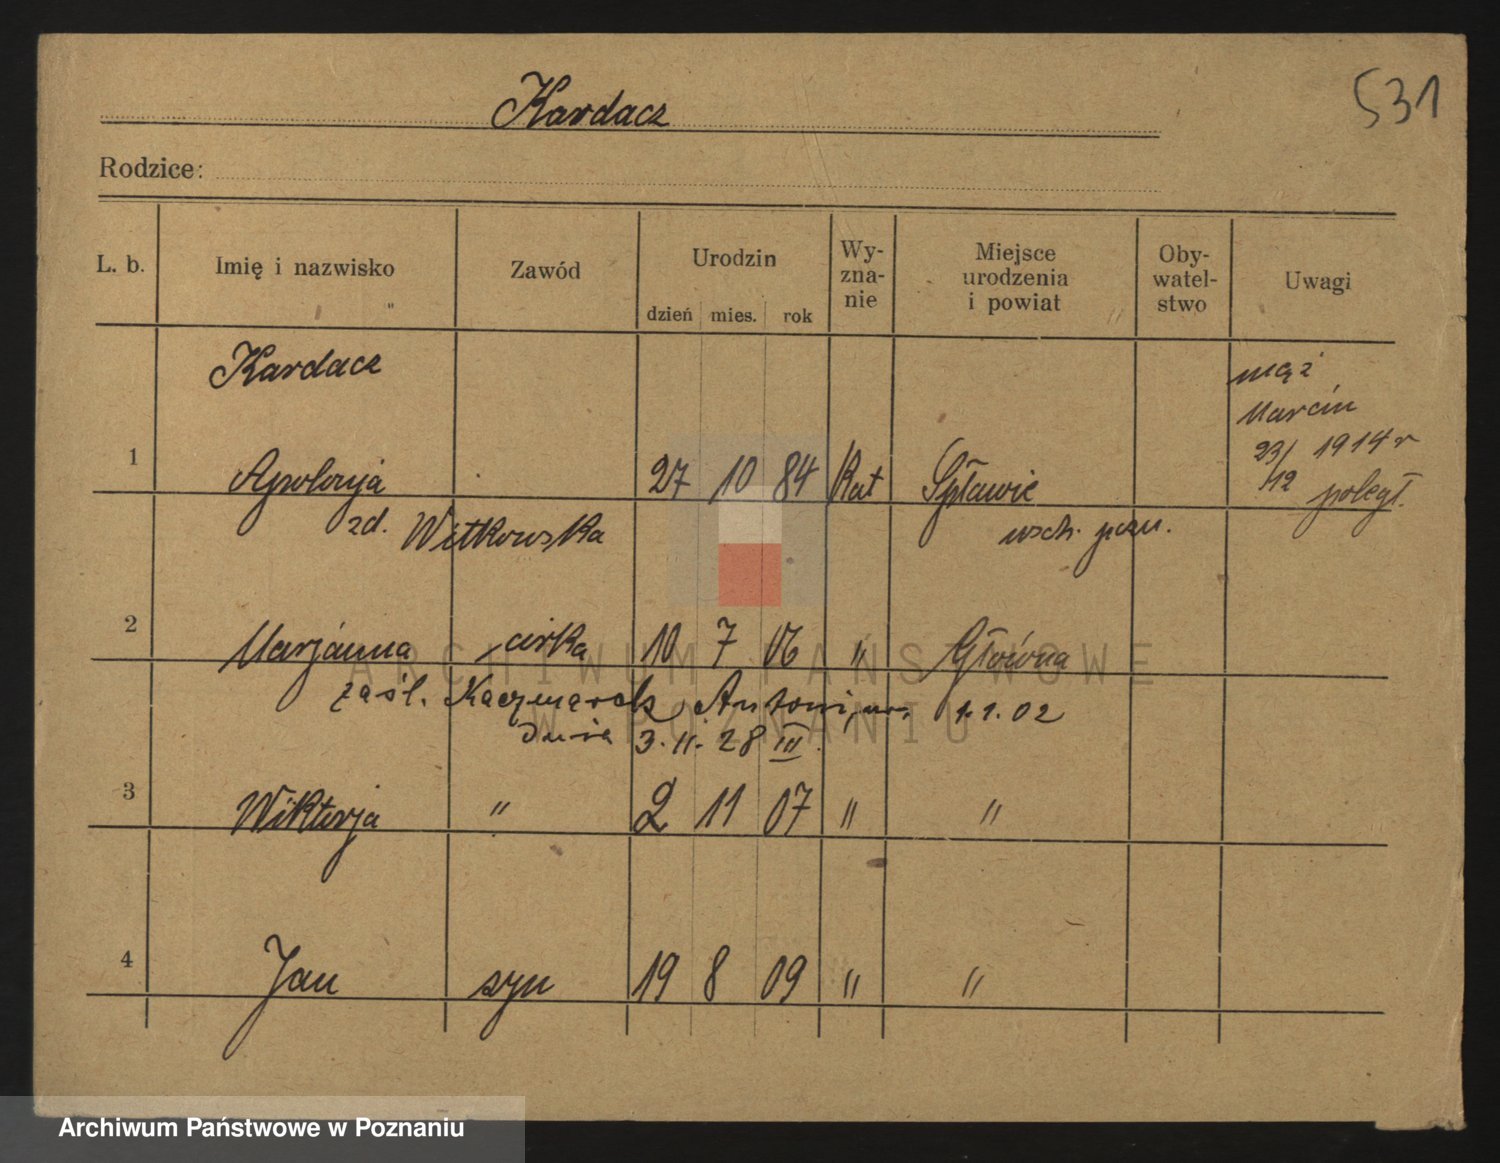 531
Kardacz
Rodzice:
L. b.
Imię i nazwisko
Zawód
Urodzin
dzień mies. rok
Wy-
zna-
nie
Miejsce
urodzenia
i powiat
Oby-
watel-
stwo
Uwagi
Kardacz
mąż
Marcin
23/12 1914 r
poległ.
1 Apolonja 27 10 84 Kat Spławie
zd. Witkowska wsch. pozn.
2 Marjanna córka 10 7 06 " Główna
zaśl. Kaczmarek Antoni, ur. 1.1.02
dnia 3.11.28 III.
3 Wiktorja " 2 11 07 " "
4 Jan syn 19 8 09 " "
ARCHIWUM PAŃSTWOWE
W POZNANIU
Archiwum Państwowe w Poznaniu